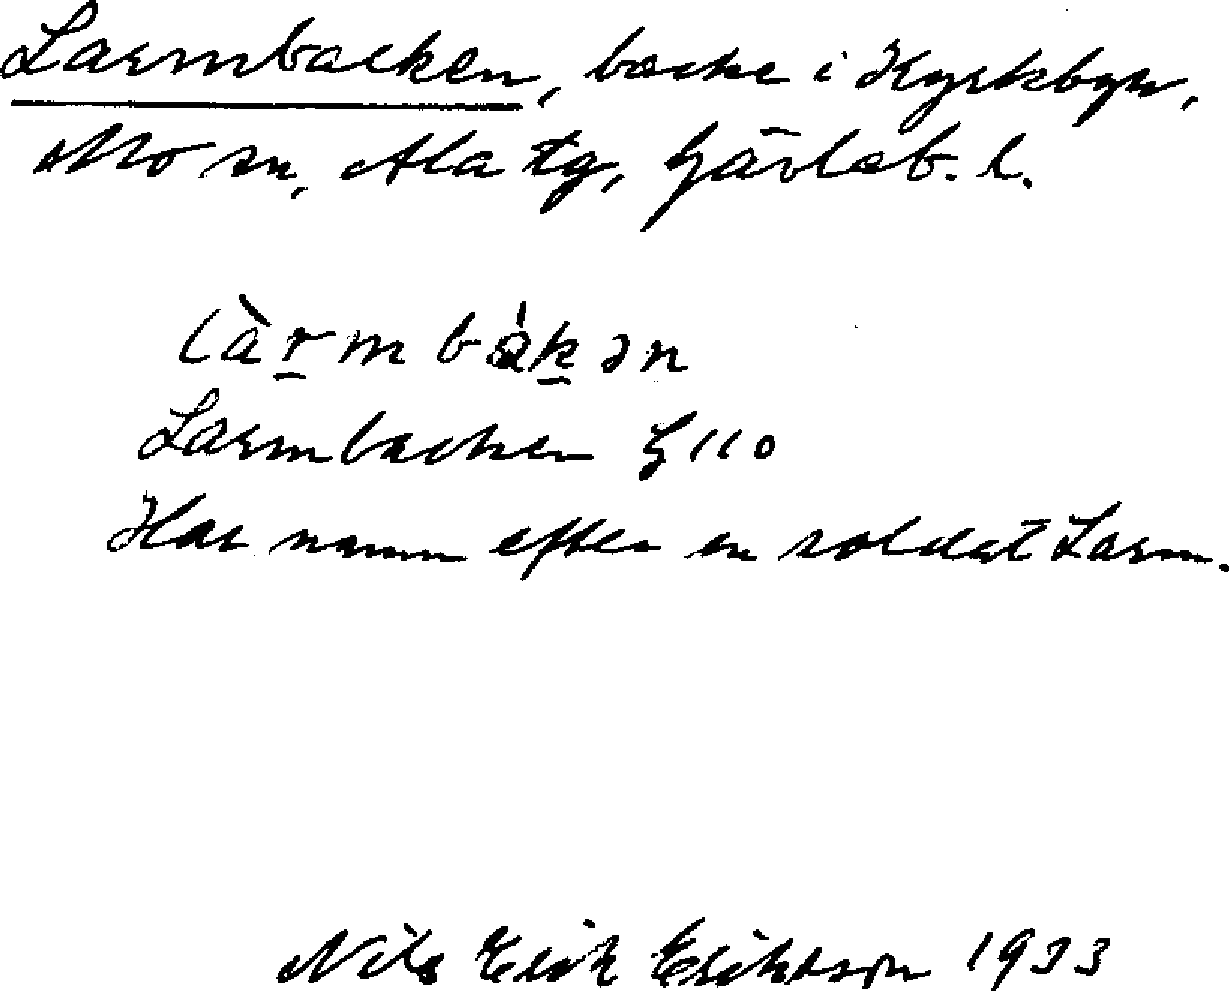 Larmbacken, backe i Kyrkbyn,
Mo sn, Ala tg, Gävleb. l.
làrmbàkən
Larmbacken G 110
Har namn efter en soldat Larm.
Nils Erik Eriksson 1933